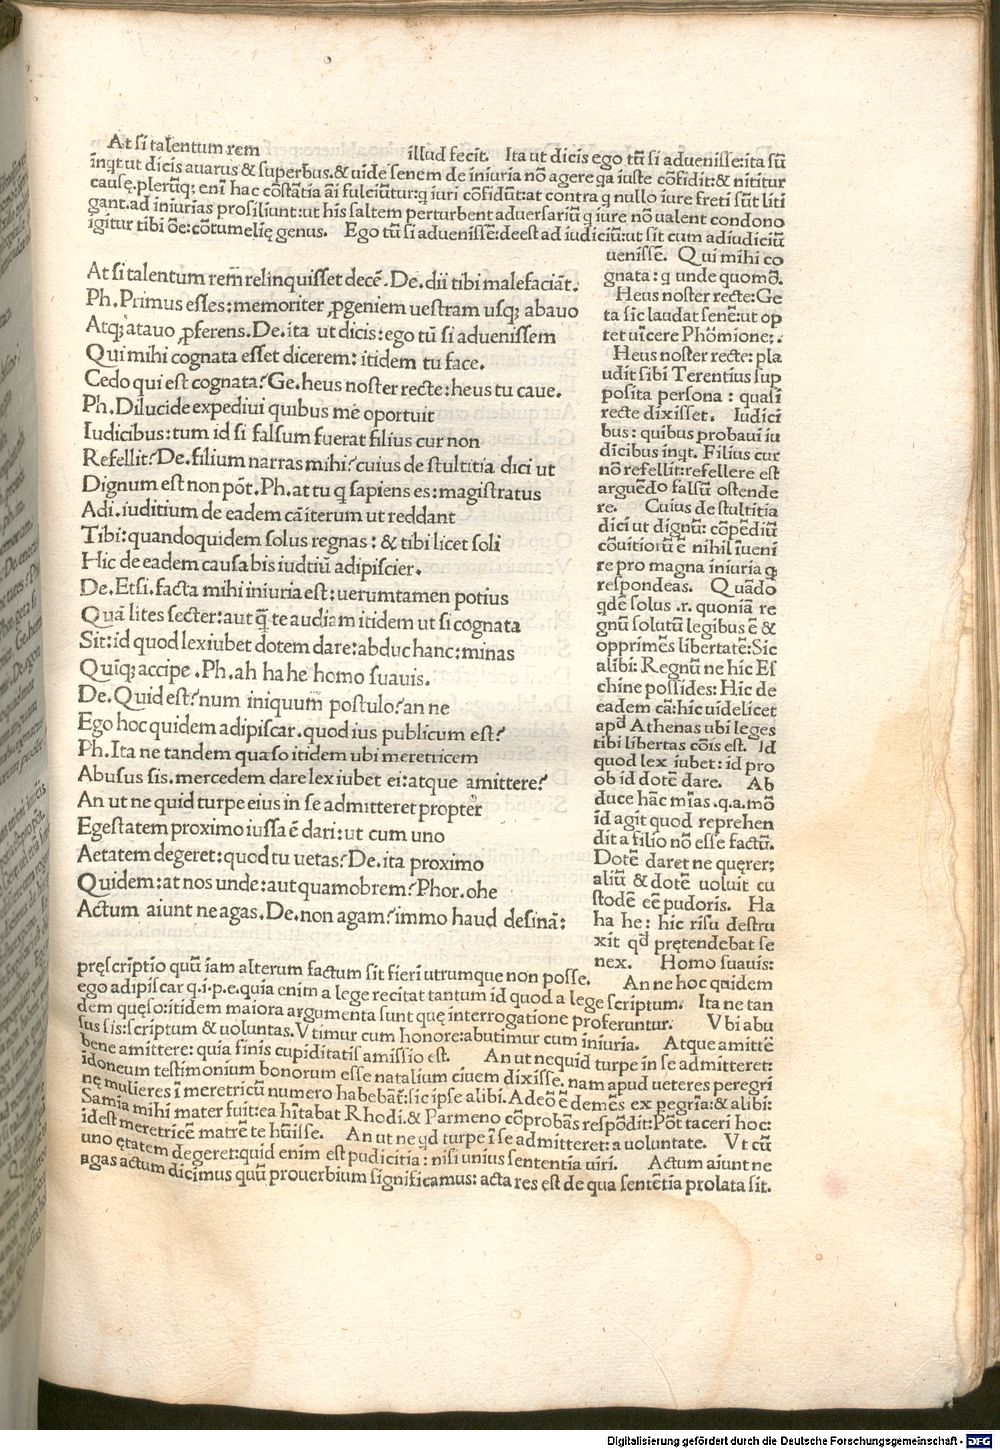 At si talentum rem illud fecit. Ita ut dicis ego tū si aduenisse: ita sū
inqt ut dicis auarus & superbus. & uide senem de iniuria nō agere qa iuste cōfidit: & nititur
causę. plerūq; eni hac cōstātia aī fulciūtur: q iuri cōfidūt: at contra q nullo iure freti sūt liti
gant. ad iniurias prosiliunt: ut his saltem perturbent aduersariū q iure nō ualent condono
igitur tibi ōe: cōtumelię genus. Ego tū si aduenissē: deest ad iudiciū: ut sit cum adiudiciū
At si talentum rem̄ relinquisset decē. De. dii tibi malefaciāt.
Ph. Primus esses: memoriter ꝓgeniem uestram usq; abauo
Atq; atauo ꝓferens. De. ita ut dicis: ego tū si aduenissem
Qui mihi cognata esset dicerem: itidem tu face.
Cedo qui est cognata? Ge. heus noster recte: heus tu caue.
Ph. Dilucide expediui quibus me oportuit
Iudicibus: tum id si falsum fuerat filius cur non
Refellit? De. filium narras mihi? cuius de stultitia dici ut
Dignum est non pōt. Ph. at tu q sapiens es: magistratus
Adi. iuditium de eadem cā iterum ut reddant
Tibi: quandoquidem solus regnas: & tibi licet soli
Hic de eadem causa bis iudtiū adipiscier.
De. Etsi. facta mihi iniuria est: uerumtamen potius
Quā lites secter: aut q̄ te audiam itidem ut si cognata
Sit: id quod lex iubet dotem dare: abduc hanc: minas
Quiq; accipe. Ph. ah ha he homo suauis.
De. Quid est? num iniquum postulo? an ne
Ego hoc quidem adipiscar. quod ius publicum est?
Ph. Ita ne tandem quaso itidem ubi meretricem
Abusus sis. mercedem dare lex iubet ei: atque amittere?
An ut ne quid turpe eius in se admitteret propter
Egestatem proximo iussa ē dari: ut cum uno
Aetatem degeret: quod tu uetas? De. ita proximo
Quidem: at nos unde: aut quamobrem? Phor. ohe
Actum aiunt ne agas. De. non agam? immo haud desinā:
uenissē. Qui mihi co
gnata: q unde quomō.
Heus noster recte: Ge
ta sic laudat senē: ut op
tet uīcere Phōmione;.
Heus noster recte: pla
udit sibi Terentius sup
posita persona: quasi
recte dixisset. Iudici
bus: quibus probaui iu
dicibus inqt. Filius cur
nō refellit: refellere est
arguēdo falsū ostende
re. Cuius de stultitia
dici ut dignū: cōpēdiū
cōuitiorū ē nihil īueni
re pro magna iniuria q
respondeas. Quādo
qdē solus .r. quoniā re
gnū solutū legibus ē &
opprimēs libertatē: Sic
alibi: Regnū ne hic Es
chine possides: Hic de
eadem cā: hic uidelicet
apd Athenas ubi leges
tibi libertas cōis est. Id
quod lex iubet: id pro
ob id dotē dare. Ab
duce hāc mīas .q.a. mō
id agit quod reprehen
dit a filio nō esse factū.
Dotē daret ne quęrer;
aliū & dotē uoluit cu
stodē eē pudoris. Ha
ha he: hic risu destru
xit qd pretendebat se
nex. Homo suauis:
pręscriptio quū iam alterum factum sit fieri utrumque non posse. An ne hoc quidem
ego adipiscar q.i.p.e. quia enim a lege recitat tantum id quod a lege scriptum. Ita ne tan
dem quęso: itidem maiora argumenta sunt quę interrogatione proferuntur. Vbi abu
sus sis: scriptum & uoluntas. Vtimur cum honore: abutimur cum iniuria. Atque amittē
bene amittere: quia finis cupiditatis amissio est. An ut nequid turpe in se admitteret:
idoneum testimonium bonorum esse natalium ciuem dixisse. nam apud ueteres peregri
nę mulieres ī meretricū numero habebāt: sic ipse alibi. Adeō ē demēs ex pegria: & alibi:
Samia mihi mater fuit: ea hītabat Rhodi. & Parmeno cōprobās respōdit: Pōt taceri hoc:
idest meretricē matrē te hūisse. An ut ne qd turpe ī se admitteret: a uoluntate. Vt cū
uno ętatem degeret: quid enim est pudicitia: nisi unius sententia uiri. Actum aiunt ne
agas actum dicimus quū prouerbium significamus: acta res est de qua sentētia prolata sit.
Digitalisierung gefördert durch die Deutsche Forschungsgemeinschaft - DFG